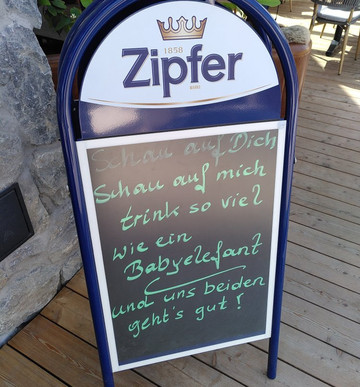 1858
Zipfer
Schau auf Dich
Schau auf mich
trink so viel
wie ein
Babyelefant
und uns beiden
geht's gut!